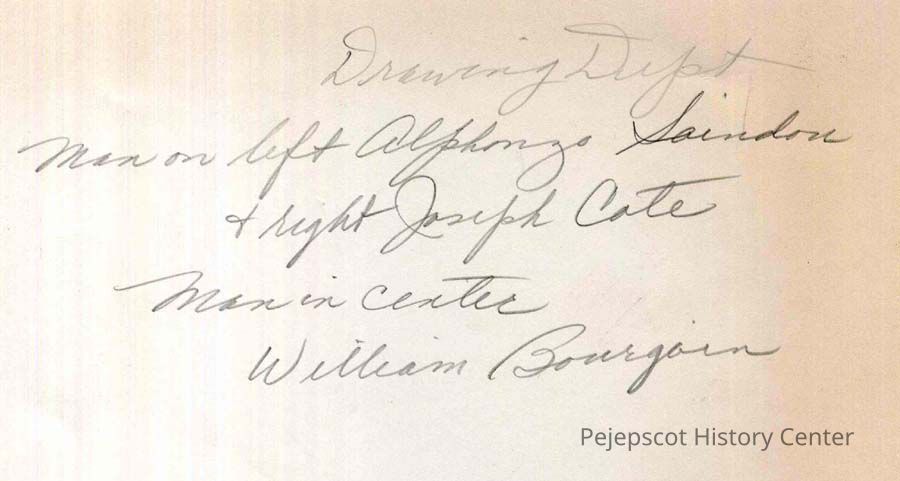 Drawing Dept
Man on left Alphonzo Saindon
+ right Joseph Cote
Man in center
William Bourgoin
Pejepscot History Center